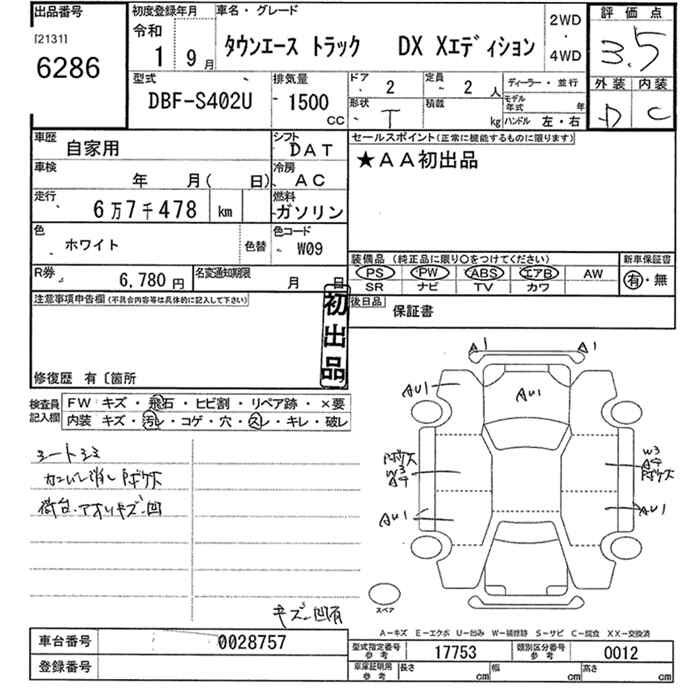 出品番号
[2131]
6286
初度登録年月
令和
1 9月
車名・グレード
タウンエース トラック DX Xエディション
2WD
・
4WD
評価点
3.5
型式
DBF-S402U
排気量
1500
CC
ドア
2
定員
2 人
形状
T
積載
kg
ディーラー・並行
モデル年式 年
ハンドル 左・右
外装 内装
D C
車歴
自家用
シフト
DAT
車検
年 月( 日)
冷房
AC
走行
6万7千478 km
燃料
ガソリン
色
ホワイト
色替
色コード
W09
R券
6,780 円
名変通知期限
月 日
セールスポイント(正常に機能するものに限ります)
★AA初出品
装備品 (純正品に限り○をつけてください)
PS PW ABS エアB AW
SR ナビ TV カワ
新車保証書
有・無
後日品
保証書
注意事項申告欄(不具合内容等は具体的に記入して下さい)
初出品
修復歴 有〔箇所
検査員記入欄
FW キズ・飛石・ヒビ割・リペア跡・×要
内装 キズ・汚レ・コゲ・穴・スレ・キレ・破レ
シートシミ
荷台、アオリキズ凹
キズ凹有
A1 A1
AU1
AU1
W3
W3
AU1
AU1
スペア
A-キズ E-エクボ U-凹み W-補修跡 S-サビ C-腐食 XX-交換済
車台番号
0028757
登録番号
型式指定番号 参考
17753
類別区分番号 参考
0012
車庫証明用 参考
長さ cm
幅 cm
高さ cm